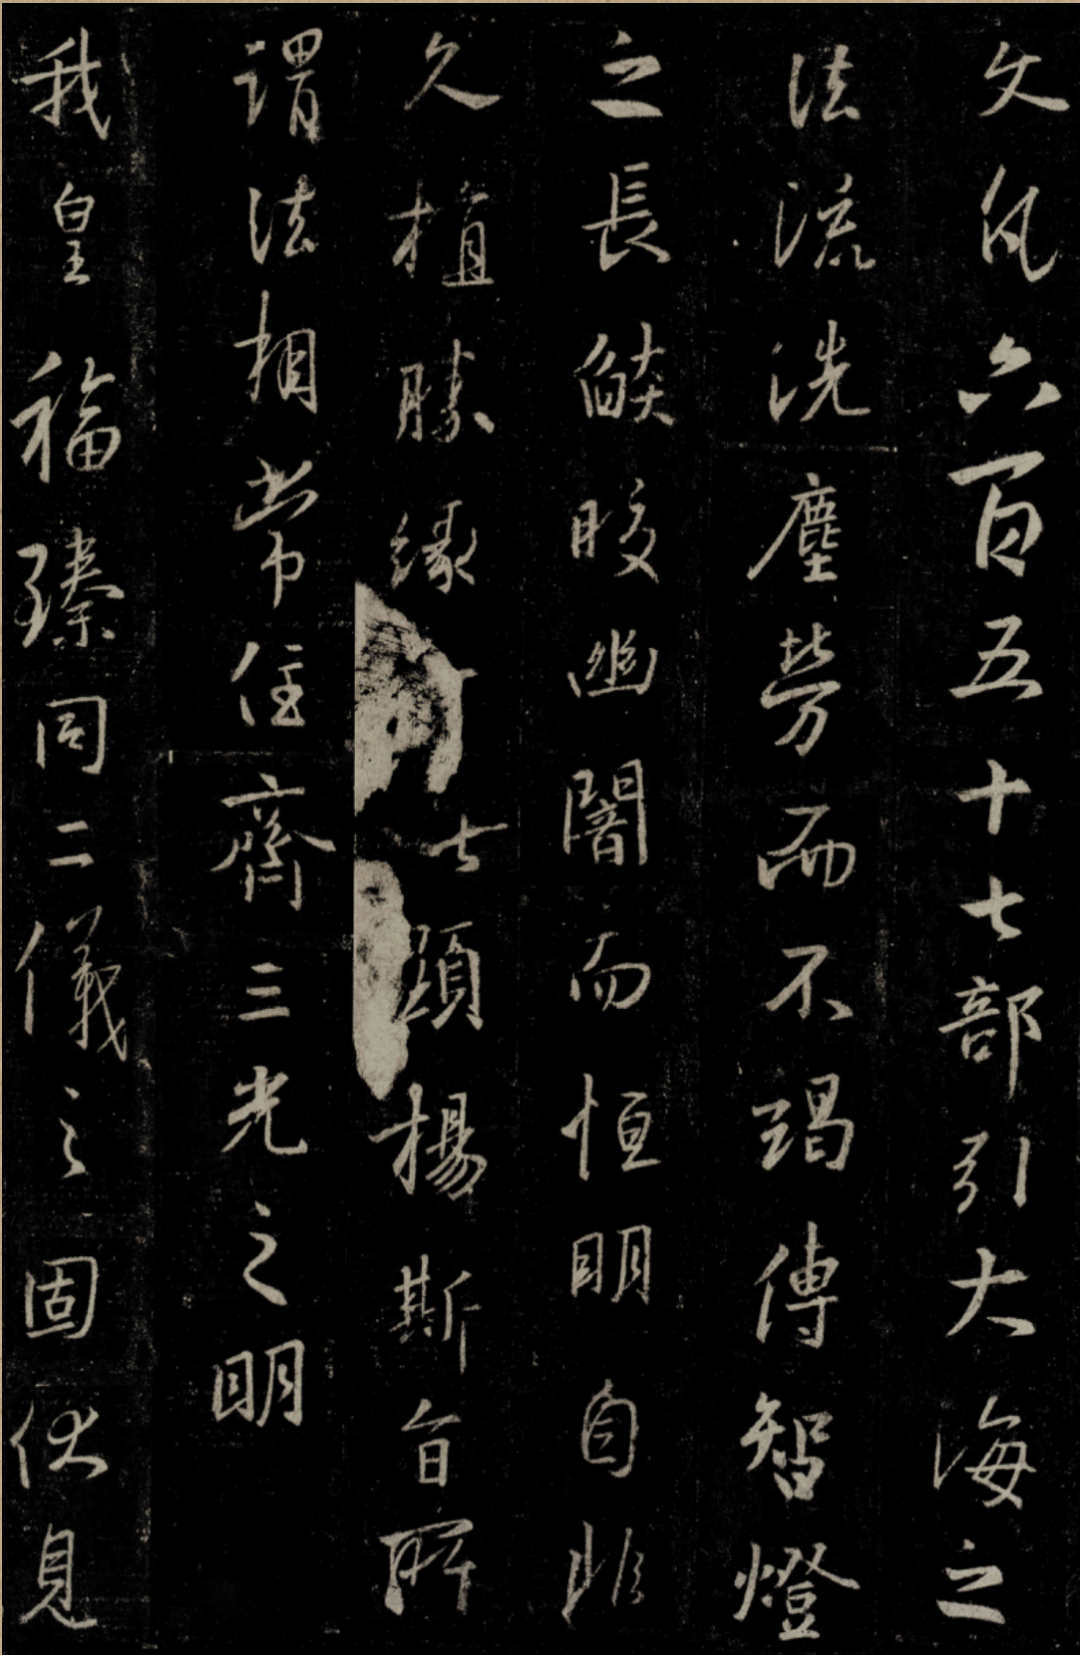 文凡六百五十七部引大海之
法流洗塵勞而不竭傳智燈
之長焰皎幽闇而恒明自非
久植勝緣何以顯揚斯旨所
謂法相常住齊三光之明
我皇福臻同二儀之固伏見